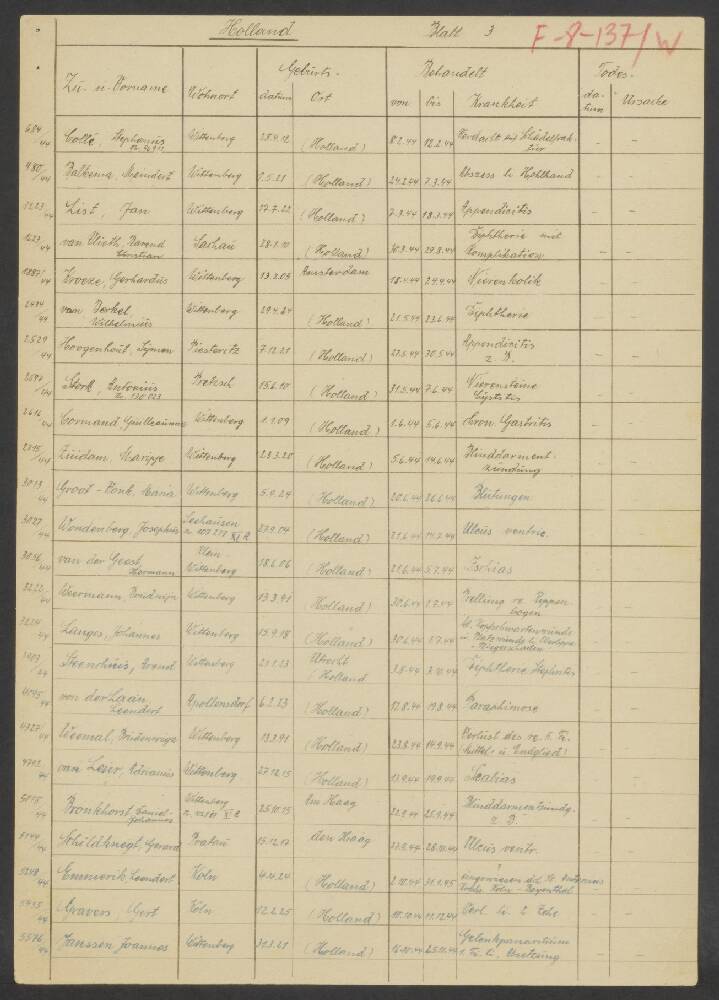 Holland Blatt 3 F-8-137/W
Geburts- Behandelt Todes-
Zu- u. Vorname Wohnort datum Ort von bis Krankheit da-tum Ursache
684/44 Collé, Stephanus Wittenberg 28.4.12 (Holland) 8.2.44 12.2.44 Verdacht auf Schädelfrak-
tur
480/44 Balkema, Meindert Wittenberg (Holland) 24.2.44 7.3.44 Abszess li. Hohlhand - -
1223/44 List, Jan Wittenberg 17.7.22 (Holland) 7.3.44 18.3.44 Appendicitis - -
1623/44 van Vlieth, Barend Sachau (Holland) 30.3.44 29.8.44 Diphtherie mit
Christian Komplikation - -
Kroeze, Gerhardus Wittenberg 13.8.05 Amsterdam 18.4.44 24.4.44 Nierenkolik - -
2484/44 van Berkel, Wittenberg 29.4.24 (Holland) 21.5.44 23.6.44 Diphtherie - -
Wilhelmus
2529/44 Hoogenhout, Symon Piesteritz 7.12.21 (Holland) 22.5.44 30.5.44 Appendicitis
z. B. - -
Stork, Antonius Pretzsch 15.6.10 (Holland) 31.5.44 7.6.44 Nierensteine
Nr. 130 023 Cystitis - -
2616/44 Cormand, Guilleaume Wittenberg 1.1.09 (Holland) 1.6.44 5.6.44 Cron. Gastritis - -
2815/44 Zuidam, Marijje Wittenberg 28.3.20 (Holland) 5.6.44 14.6.44 Blinddarment-
zündung - -
3013/44 Groot-Bonk, Maria Wittenberg 5.9.24 (Holland) 20.6.44 26.6.44 Blutungen - -
3027/44 Wondenberg, Josephus Seehausen 27.9.04 (Holland) 21.6.44 Ulcus ventric. - -
3036/44 van der Geest, Klein- 18.6.06 (Holland) 21.6.44 5.7.44 Ischias - -
Hermann Wittenberg
Weermann, Wittenberg 13.3.91 (Holland) 30.6.44 1.7.44 Prellung re. Rippen-
bogen - -
3234/44 Langis, Johannes Wittenberg 15.9.18 (Holland) 30.6.44 1.7.44 - -
Steenhuis, Wittenberg 21.1.23 Utrecht 3.8.44 3.10.44 Diphtherie - -
Holland
4095/44 van der Laan, Apollensdorf 6.2.23 (Holland) 12.8.44 19.8.44 Paraphimose - -
Leendert
4327/44 Wittenberg 13.3.91 (Holland) 23.8.44 14.9.44 Verlust des re. K. Fi.
Mittel- u. Endglied - -
4702/44 van Leser, Adrianus Wittenberg 27.12.15 (Holland) 13.9.44 19.9.44 Scabias - -
Bronkhorst, Daniel- Wittenberg 25.10.15 Den Haag 22.9.44 25.9.44 Blinddarmentzündg.
Johannes z. B. - -
5144/44 Schildknegt, Gerard Pratau 15.12.17 den Haag 22.9.44 28.10.44 Ulcus ventr. - -
5248/44 Emmerik, Leendert Köln 4.4.24 (Holland) 2.10.44 31.1.45 eingewiesen d.d. St. Antonius
Krhs. Köln - Bayenthal - -
5435/44 Gravers, Gert Köln 12.2.25 (Holland) 10.10.44 11.12.44 Verl. li. 2. Zehe - -
5576/44 Janssen, Joannes Wittenberg 31.3.21 (Holland) 16.10.44 25.11.44 Gelenkpanaritium
1. Fi. li. - -